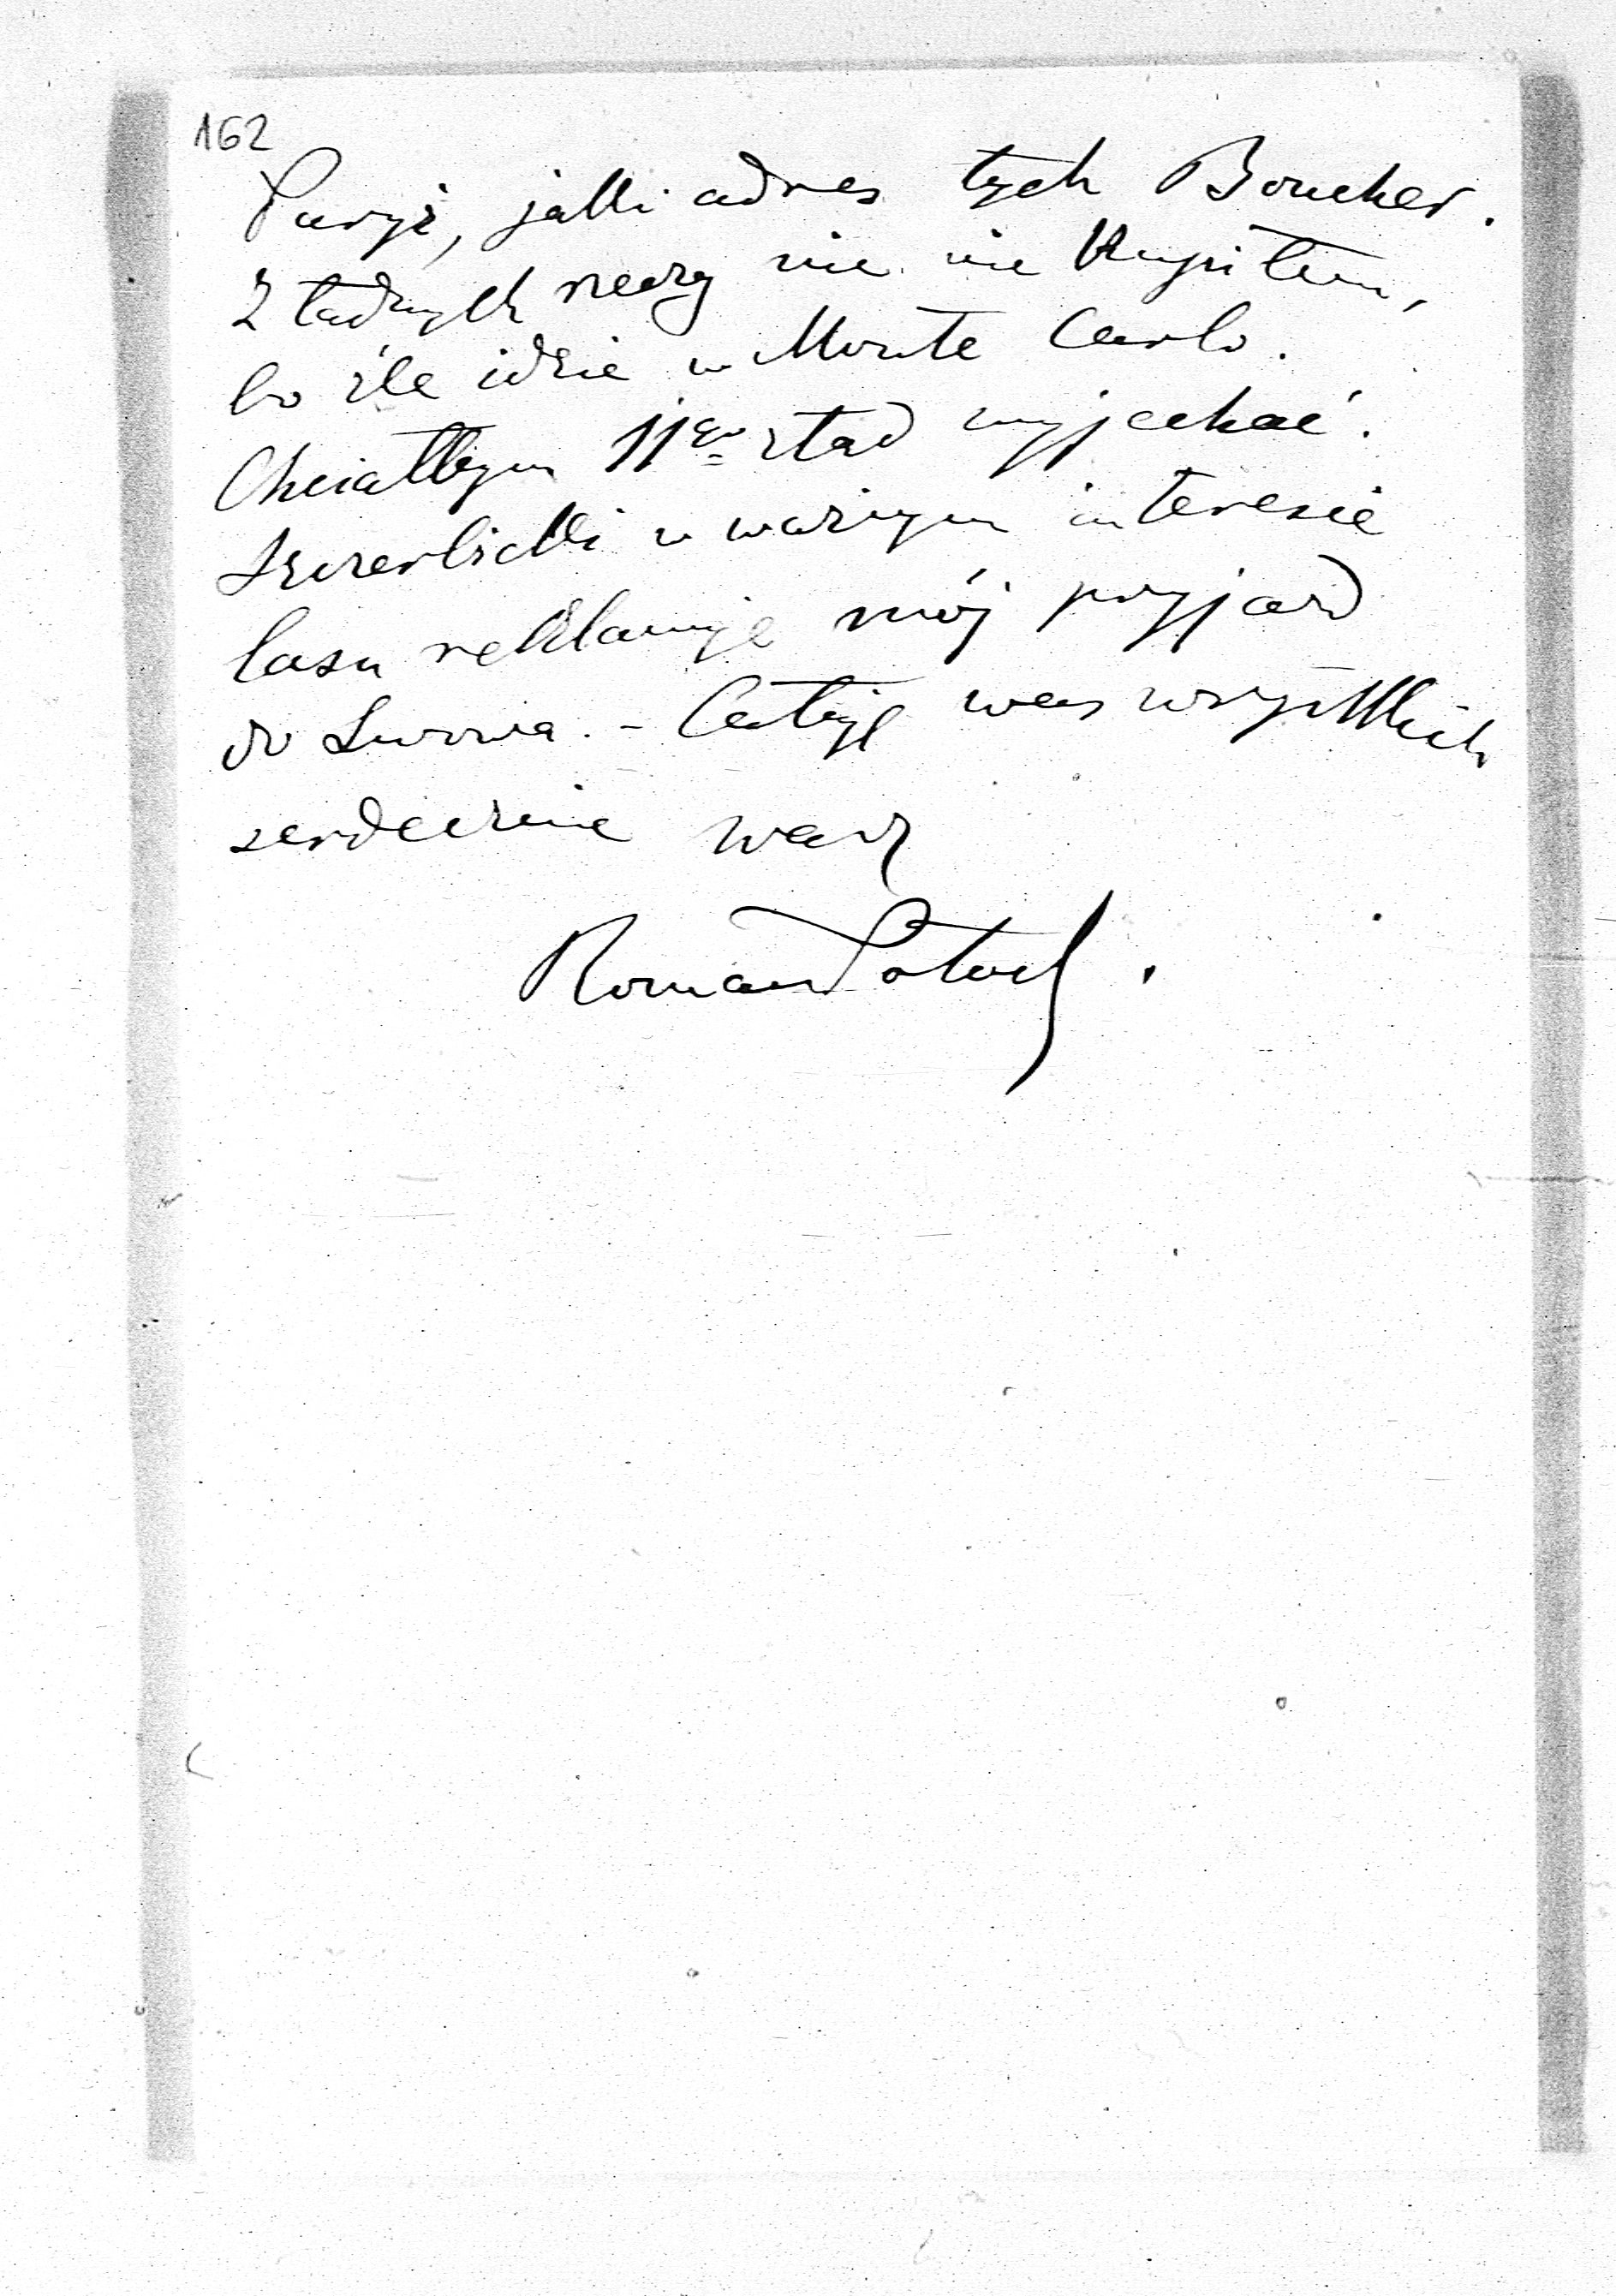 162
Paryż, jakki adres tych Boucher.
Z ładnych rzeczy nic nie kupiłem,
bo źle idzie w Monte Carlo.
Chciałbym 11go ztąd wyjechać.
w ważnym interesie
lasu reklamuje mój przyjazd
do Lwowa. – Całuję was wszystkich
serdecznie wasz
Roman Potocki.